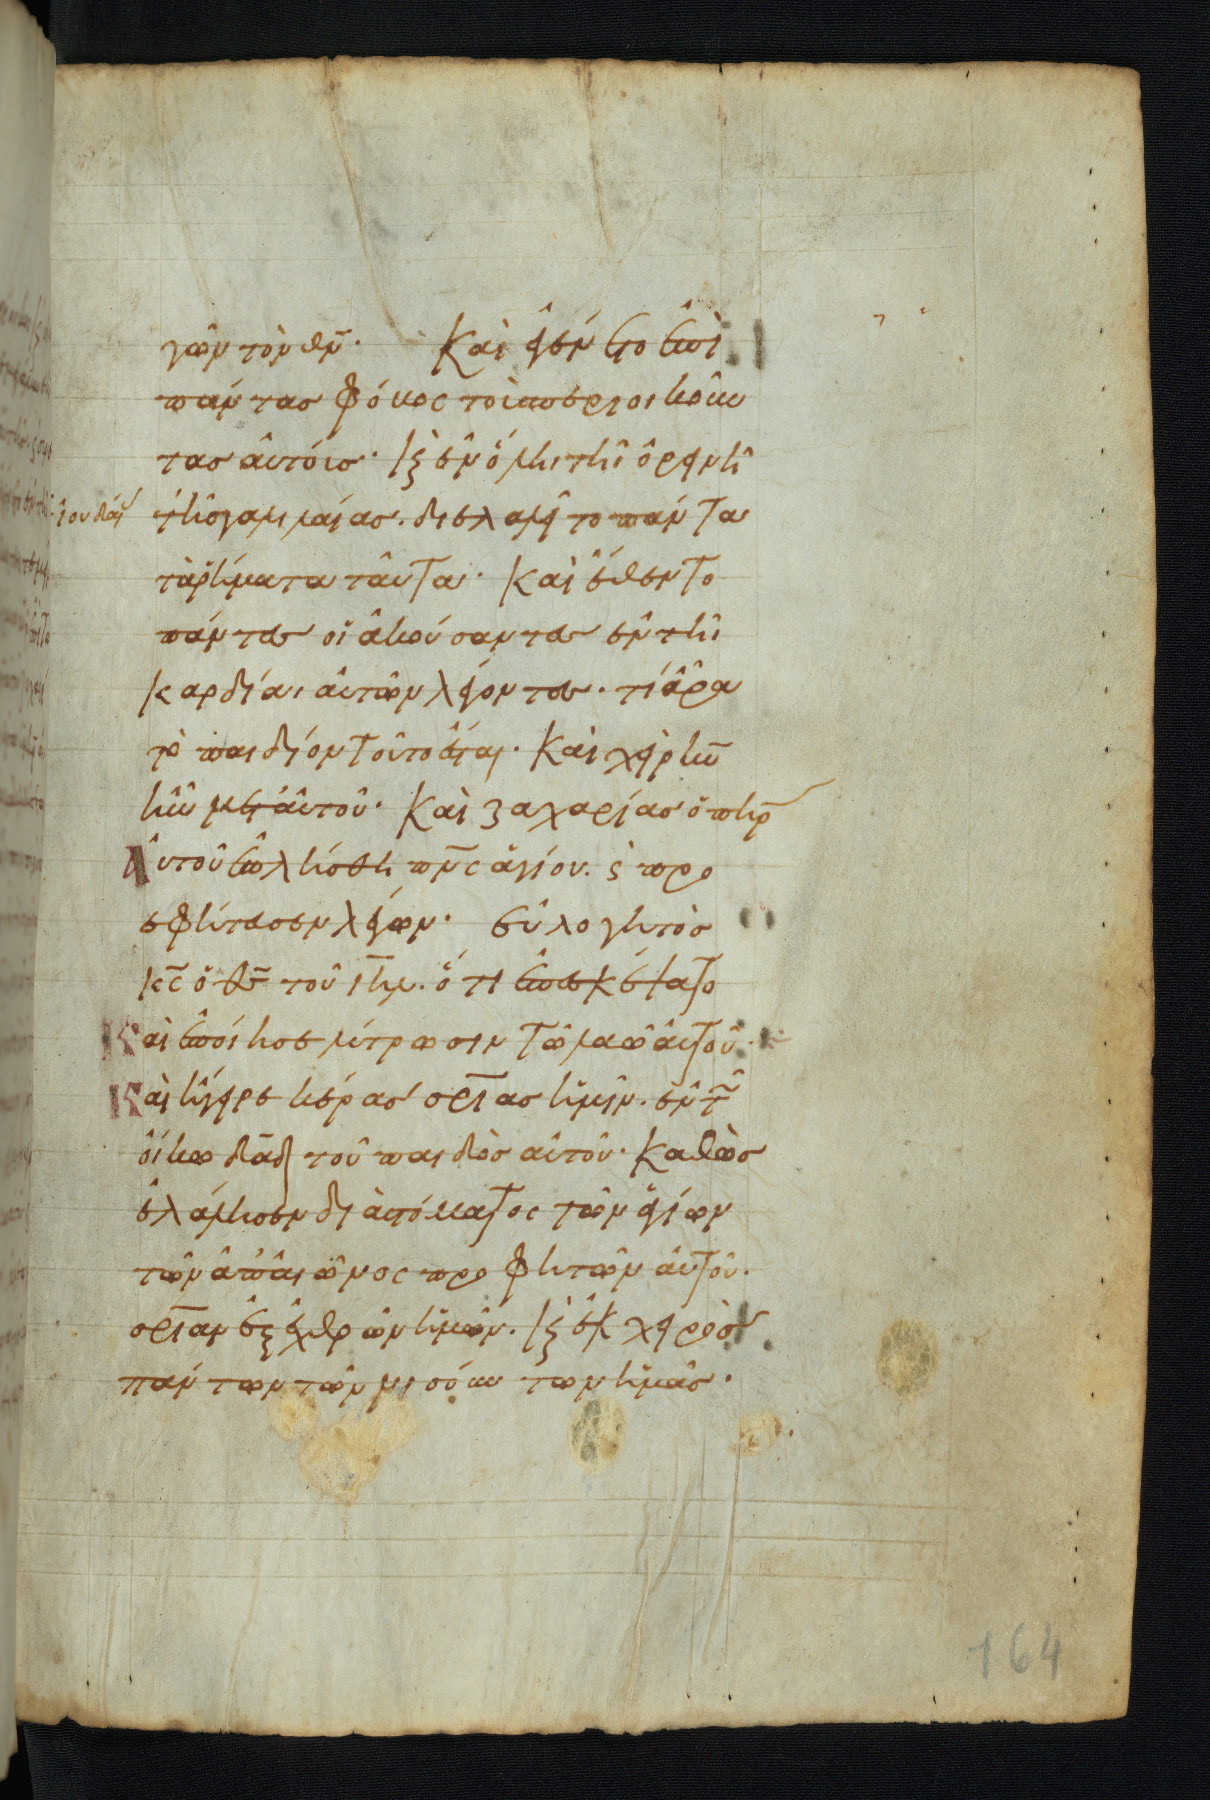 γῶν τὸν θν̄. Καὶ ἐγένετο ἐπὶ
πάντας φόβος τοὺς περιοικοῦν
τας αὐτόις. κ̀ ἐν ὅλη τῆ ὀρεινῆ
τῆς γαλιλαίας. διελαλεῖτο πάντα
τὰ ῥήματα ταῦτα. καὶ ἔθεντο
πάντες οἱ ἀκούσαντες ἐν τῆ
καρδίαι αὐτῶν λέγοντες. τί ἄρα
τὸ παιδίον τοῦτο ἔσται. καὶ χεὶρ κῡ
ἦν μετ' αὐτοῦ. καὶ ζαχαρίας ὁ πηρ̄
Αὐτοῦ ἐπλήσθη πν̄ς ἁγίου. κ̀ προ
εφήτευσεν λέγων. εὐλογητὸς
κς̄ ὁ θς̄ τοῦ ιηλ̄. ὅτι ἐπεσκέψατο
Καὶ ἐποίησε λύτρωσιν τῶ λαῶ αὐτοῦ.
Καὶ ἤγειρε κέρας σρ̄ιας ἡμῖν. ἐν τ̄
οἴκω δᾱδ τοῦ παιδὸς αὐτοῦ. καθὼς
ἐλάλησεν διὰ στόματος τῶν ἁγίων
τῶν ἀπ' ἀιῶνος προφητῶν αὐτοῦ.
σρ̄ιαν ἐξ ἐχθρῶν ἡμῶν. κ̀ ἐκ χειρὸς
πάντων τῶν μισούντων ἡμᾶς.
ἰουδαί
164